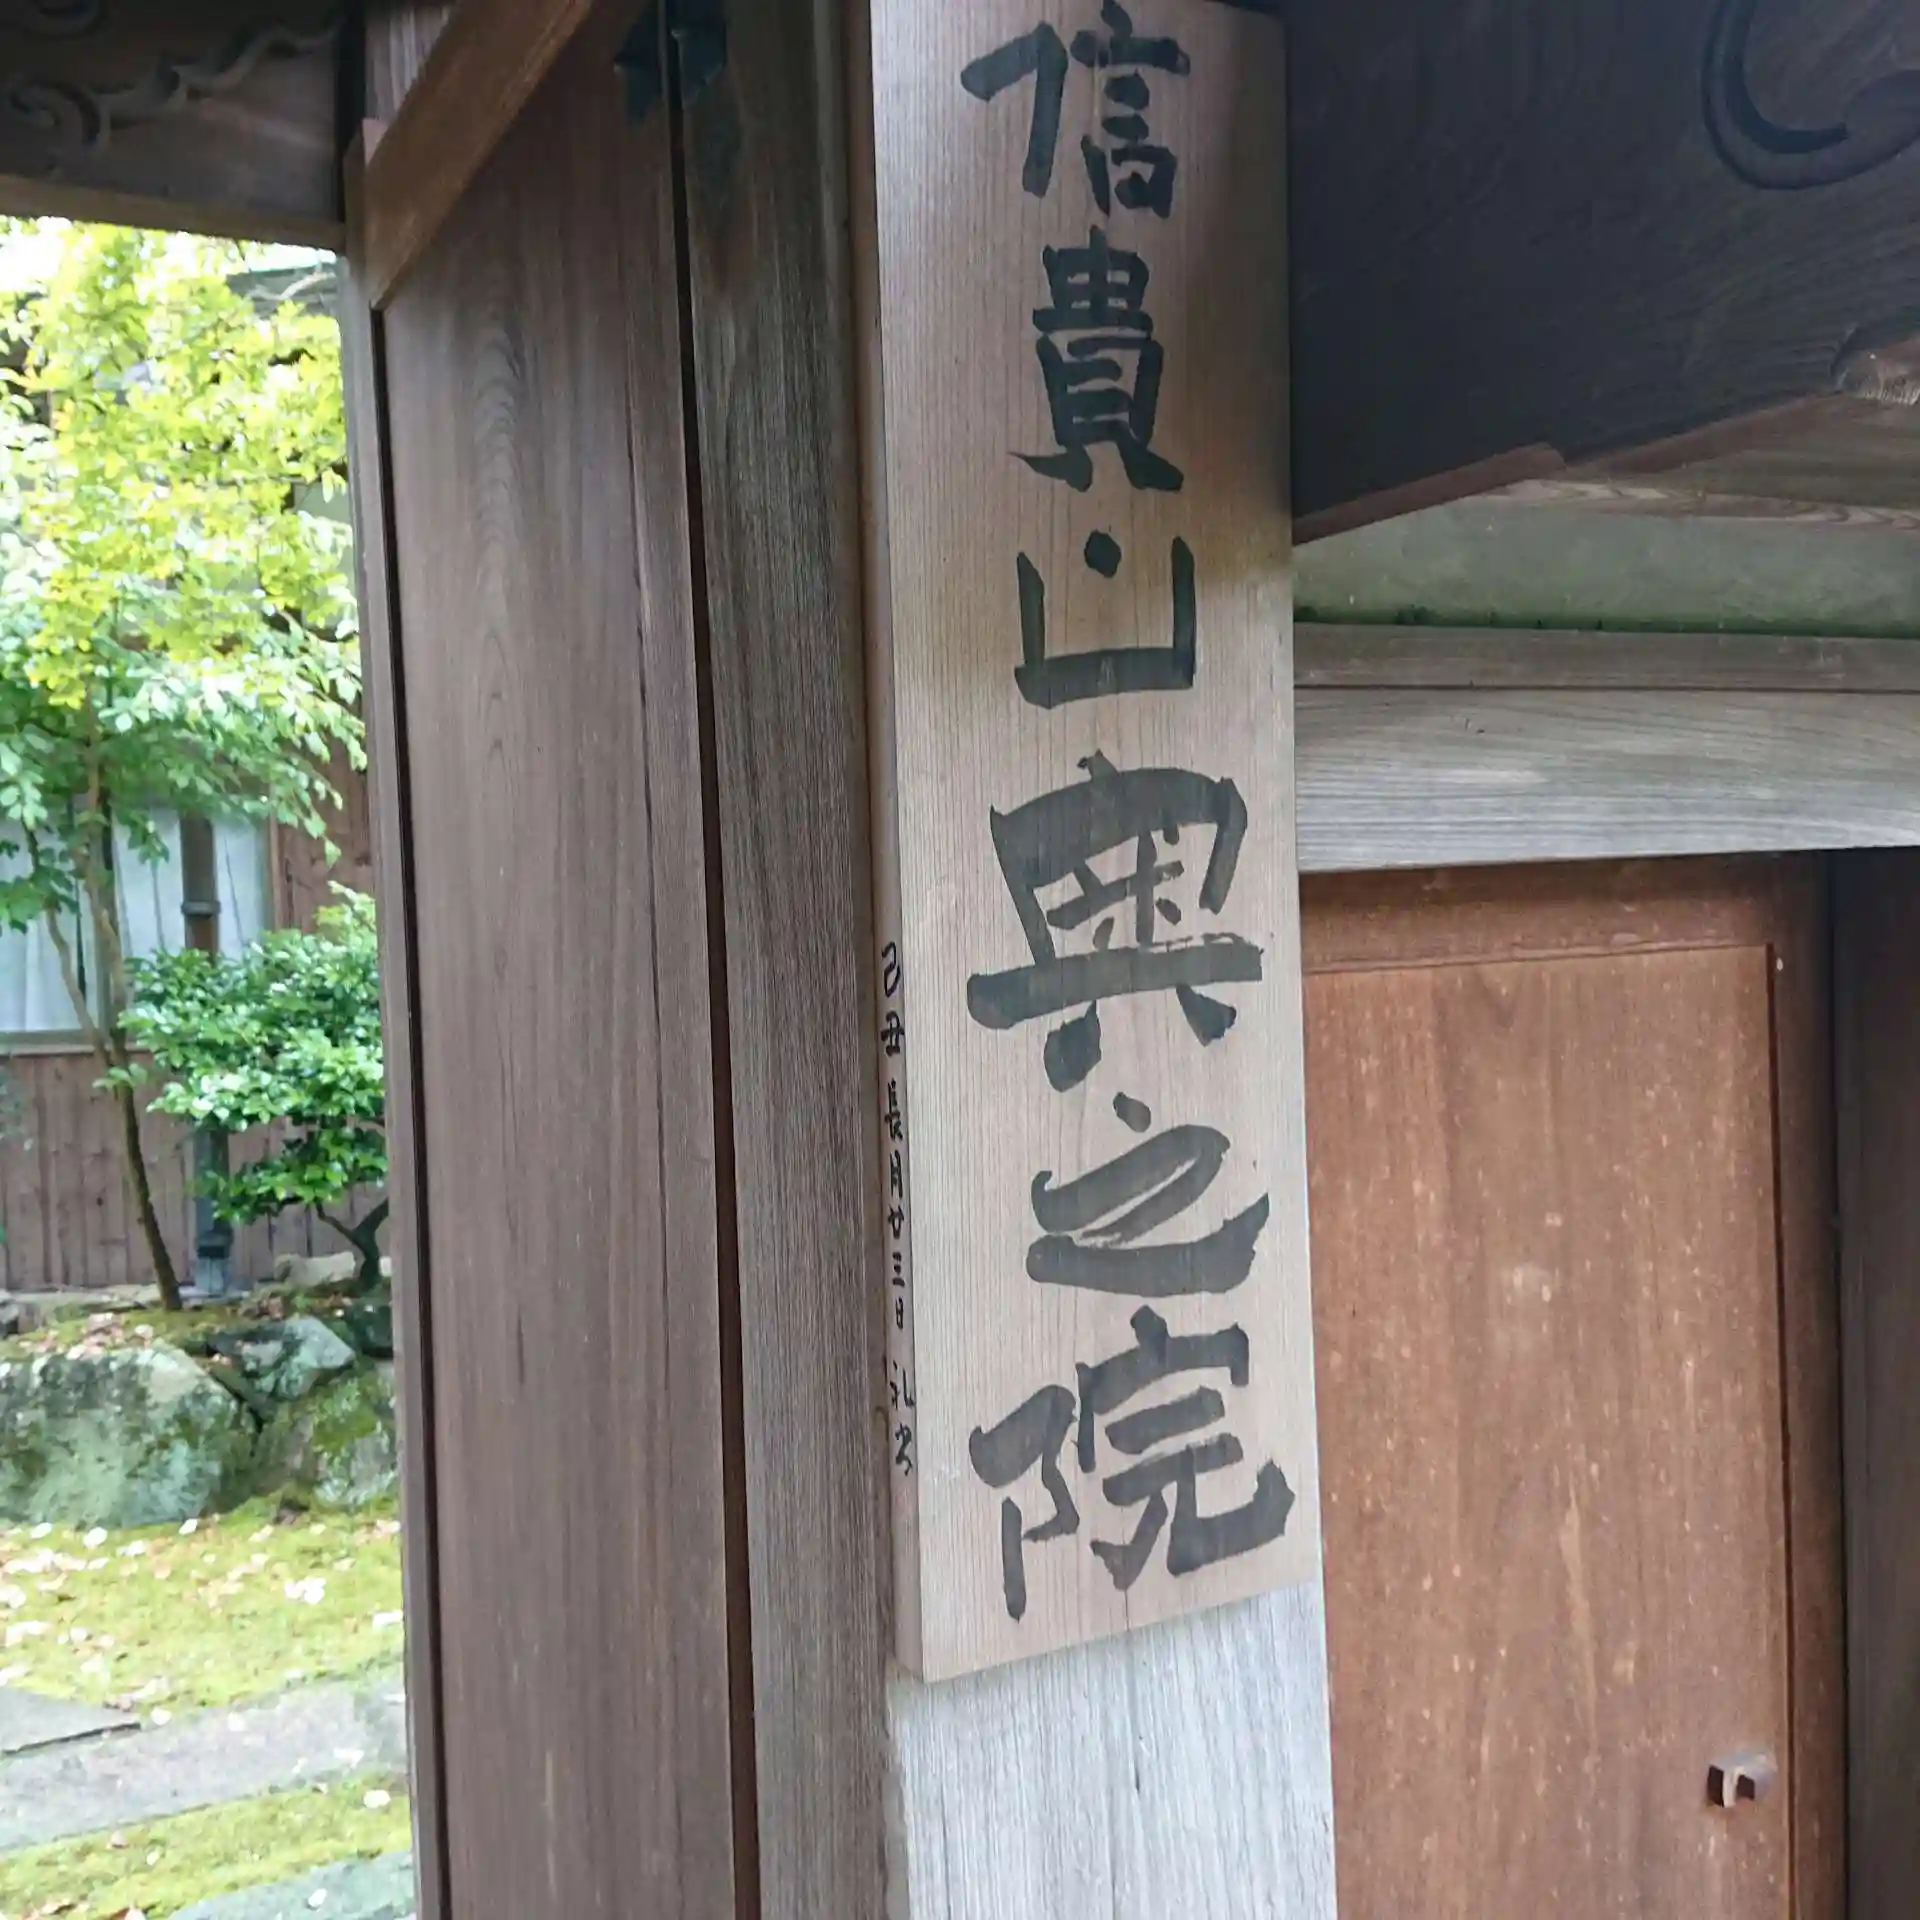 信貴山奥之院
己丑長月廿三日